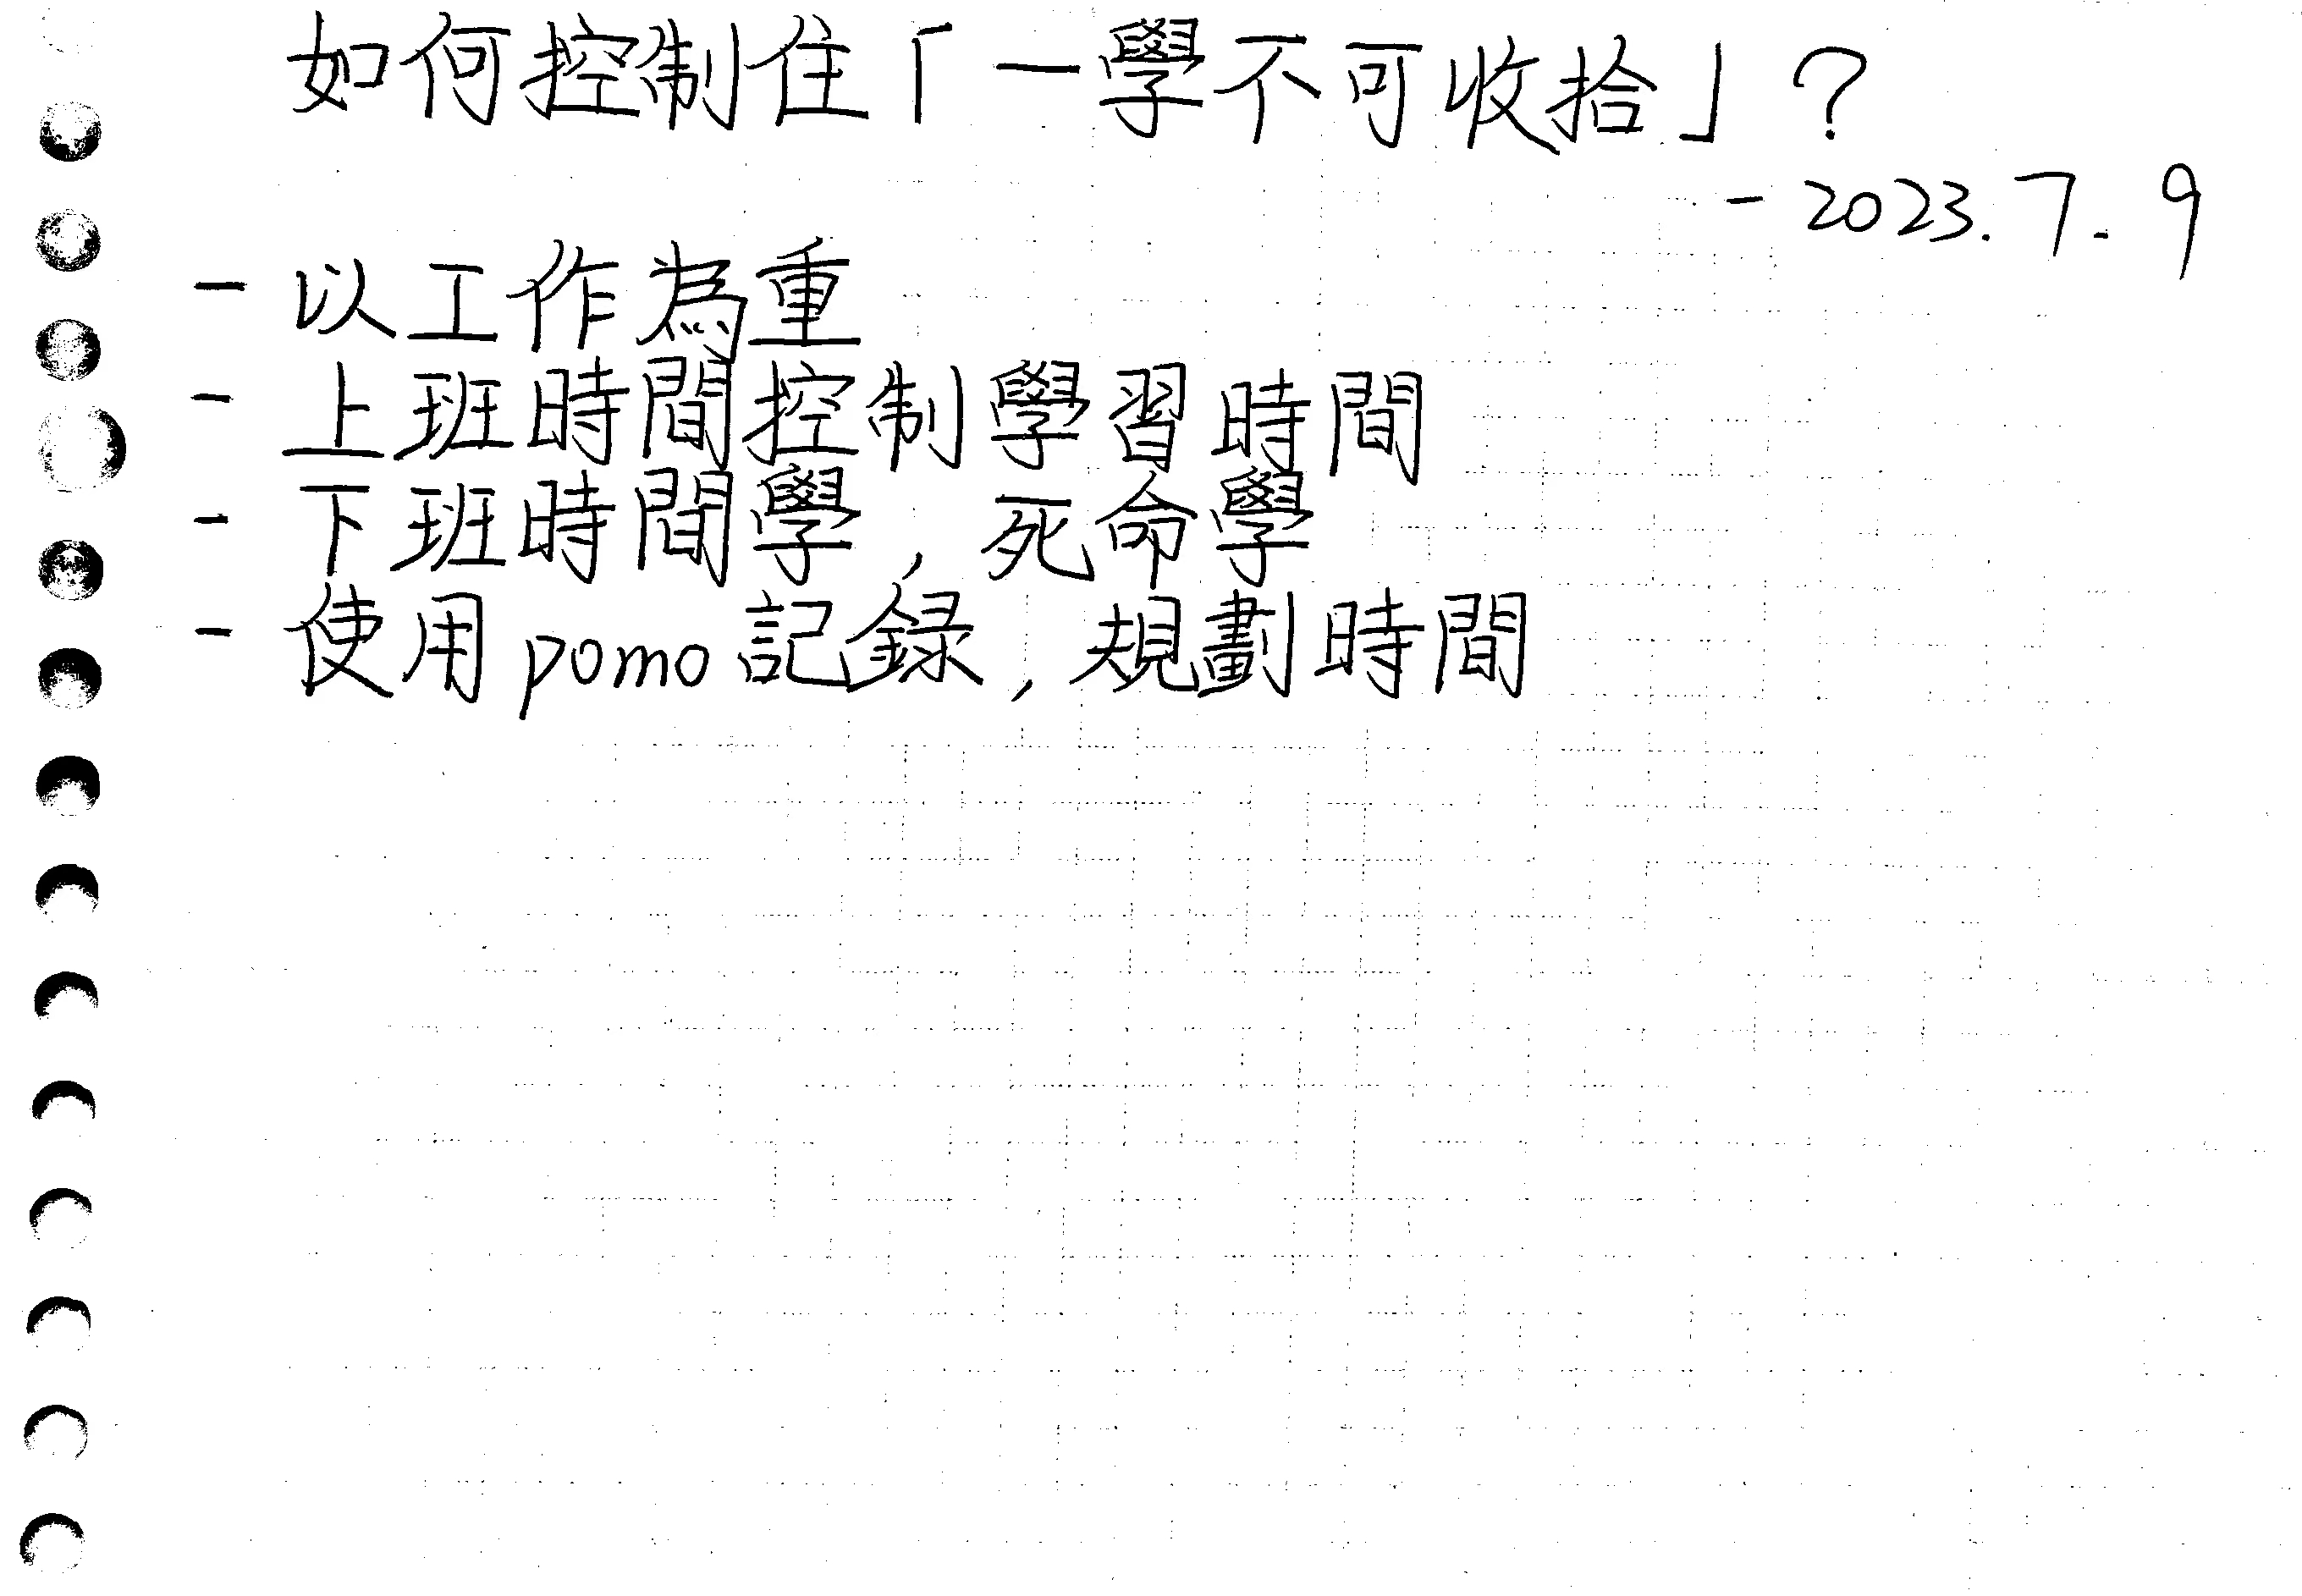 如何控制住「一學不可收拾」?
- 2023.7.9
- 以工作為重
- 上班時間控制學習時間
- 下班時間學，死命學
- 使用pomo記錄，規劃時間